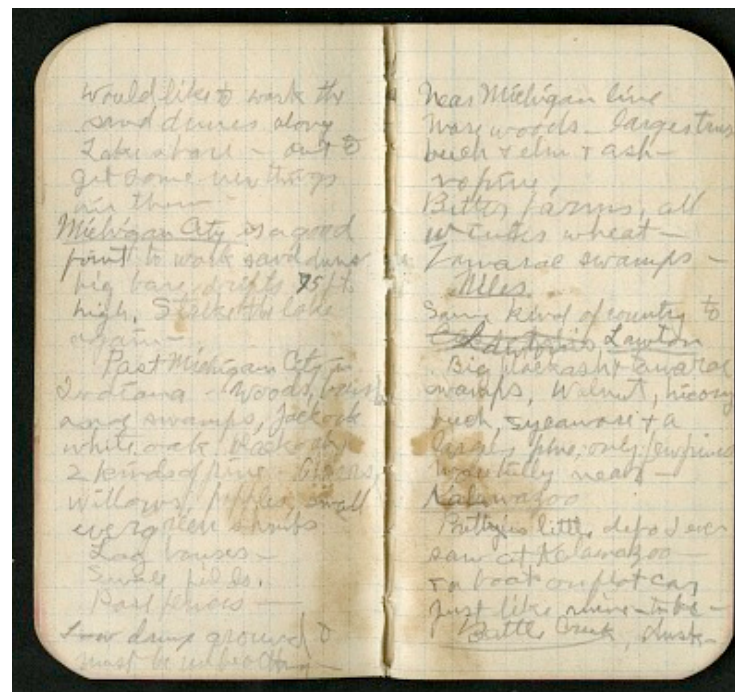 would like to work the
sand dunes along
Lake shore - out to
get some new things
in them -
Michigan City is a good
point to work sand dunes
big bare drifts 75 ft
high. Strike the lake
again -
Past Michigan City in
Indiana - Woods, brush
swamps, Jack oak
white oak black oak
2 kinds of pine -
Willows, small
evergreen shrubs
Log houses -
Small fields.
Rail fences -
Low damp ground
must be
Near Michigan line
More woods - large trees
beech & elm & ash -
no pine,
Better farms, all
winter wheat -
Tamarac swamps -
Niles
Same kind of country to
Lawton
Big black ash & tamarac
swamps, Walnut, hicory
beech, sycamore & a
large pine, only few pines
near -
Kalamazoo
Prettyis little depo I ever
saw at Kalamazoo -
& a boat on flat car
just like mine -
Battle Creek, dusk -